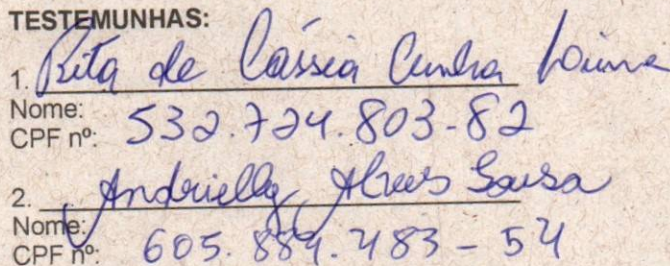 TESTEMUNHAS:
1. Rita de Cássia Cunha
Nome:
CPF nº: 532.724.803-82
2. Andrielly Alves Sousa
Nome:
CPF nº: 605.884.483-54